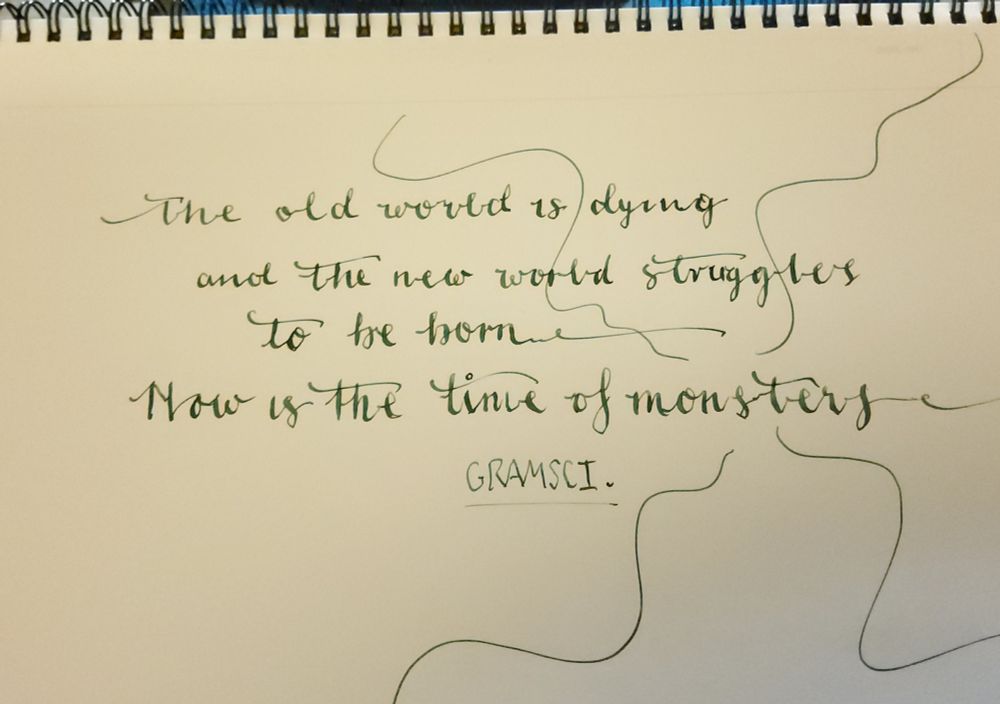 The old world is dying
and the new world struggles
to be born
Now is the time of monsters
GRAMSCI.